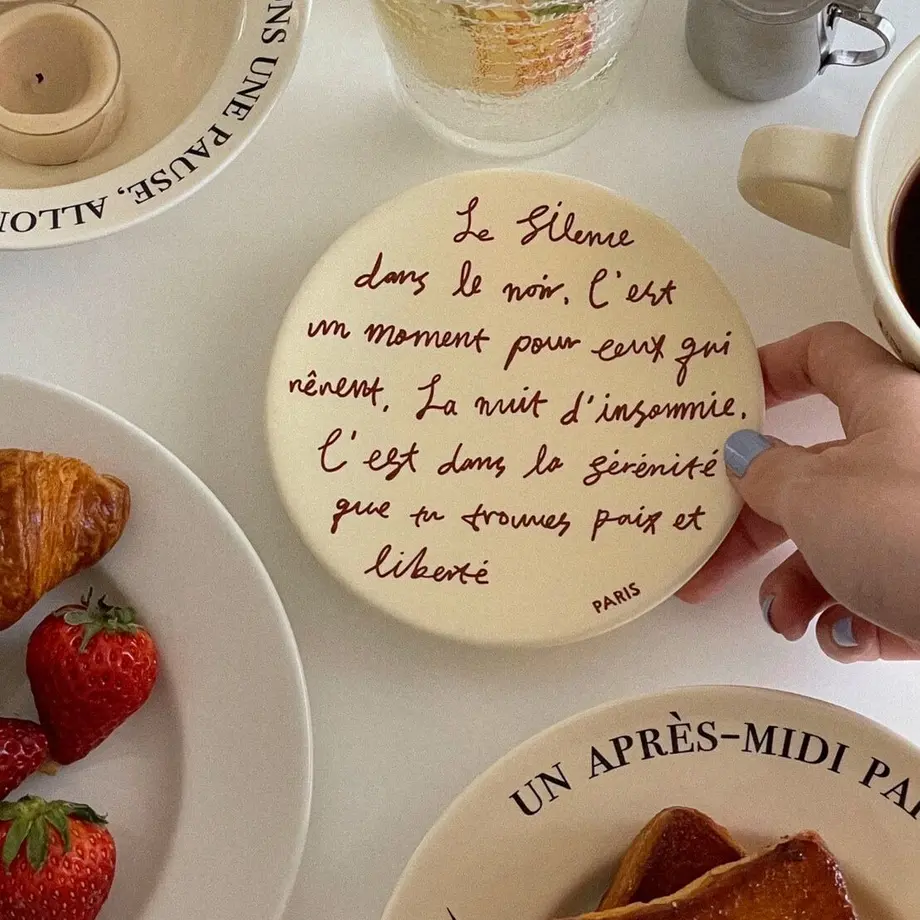 ONS UNE PAUSE, ALLON
Le Silence
dans le noir. C'est
un moment pour ceux qui
rêvent. La nuit d'insomnie.
C'est dans la sérénité
que tu trouves paix et
liberté
PARIS
UN APRÈS-MIDI PAR